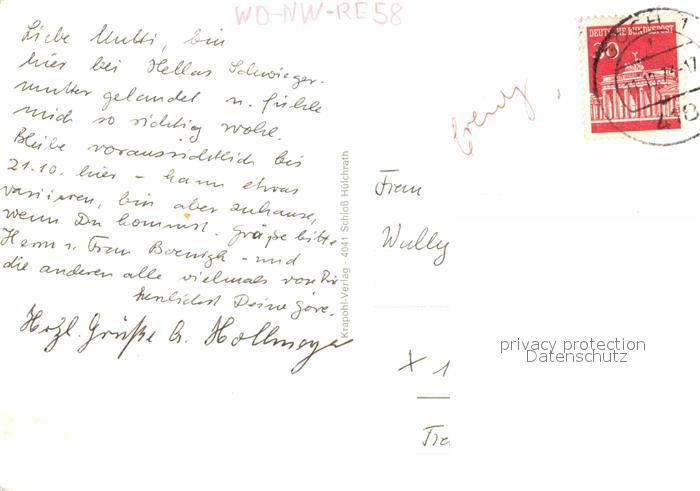 WD-NW-RE58
Liebe Mutti, bin
hier bei Hellas Schwieger-
mutter gelandet u. fühle
mich so richtig wohl.
Bleibe voraussichtlich bis
21.10. hier – kann etwas
variieren, bin aber zuhause,
wenn Du kommst. Grüße bitte
Herrn u. Frau – und
die anderen alle vielmals von Dir
herzlichst Deine
Herzl. Grüße
Krapohl-Verlag · 4041 Schloß Hülchrath
DEUTSCHE BUNDESPOST
30
Frau
Wally
X 1
privacy protection
Datenschutz